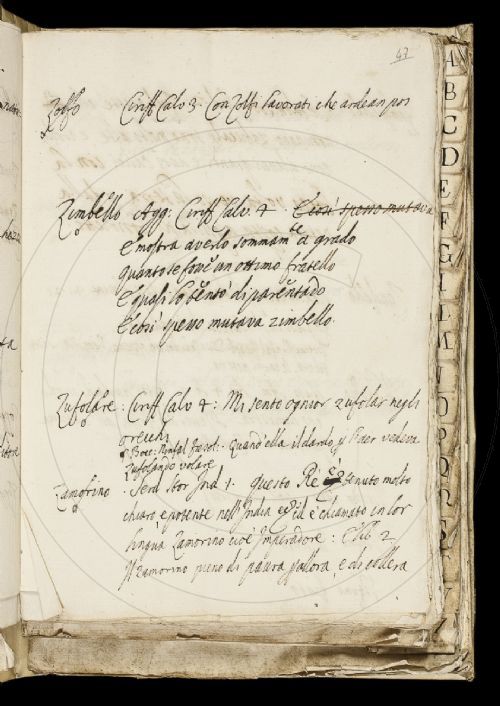 47
Zolfo Ciriff Calv 3. Con Zolfi lavorati che ardean poi
Zimbello Agg: Ciriff Calv. 4. E così spesso mutava
E mostra averlo sommam.te a grado
quanto se fosse un ottimo fratello
E quasi lo tentò di parentado
E così spesso mutava zimbello.
Zufolare: Ciriff Calv 4: Mi sento ognior zufolar negli
orecchi
Bocc: quand' ella il dardo, veniva
Zufolando volare
Zamorino. Serd. Stor Ind 1. questo Re è tenuto molto
chiaro, e potente nell' India ed è chiamato in lor
lingua Zamorino cioè Imperadore: E lib 2
Il Zamorino pieno di paura allora, e di collera
A
B
C
D
E
F
G
I
L
M
N
O
P
Q
R
S
Z